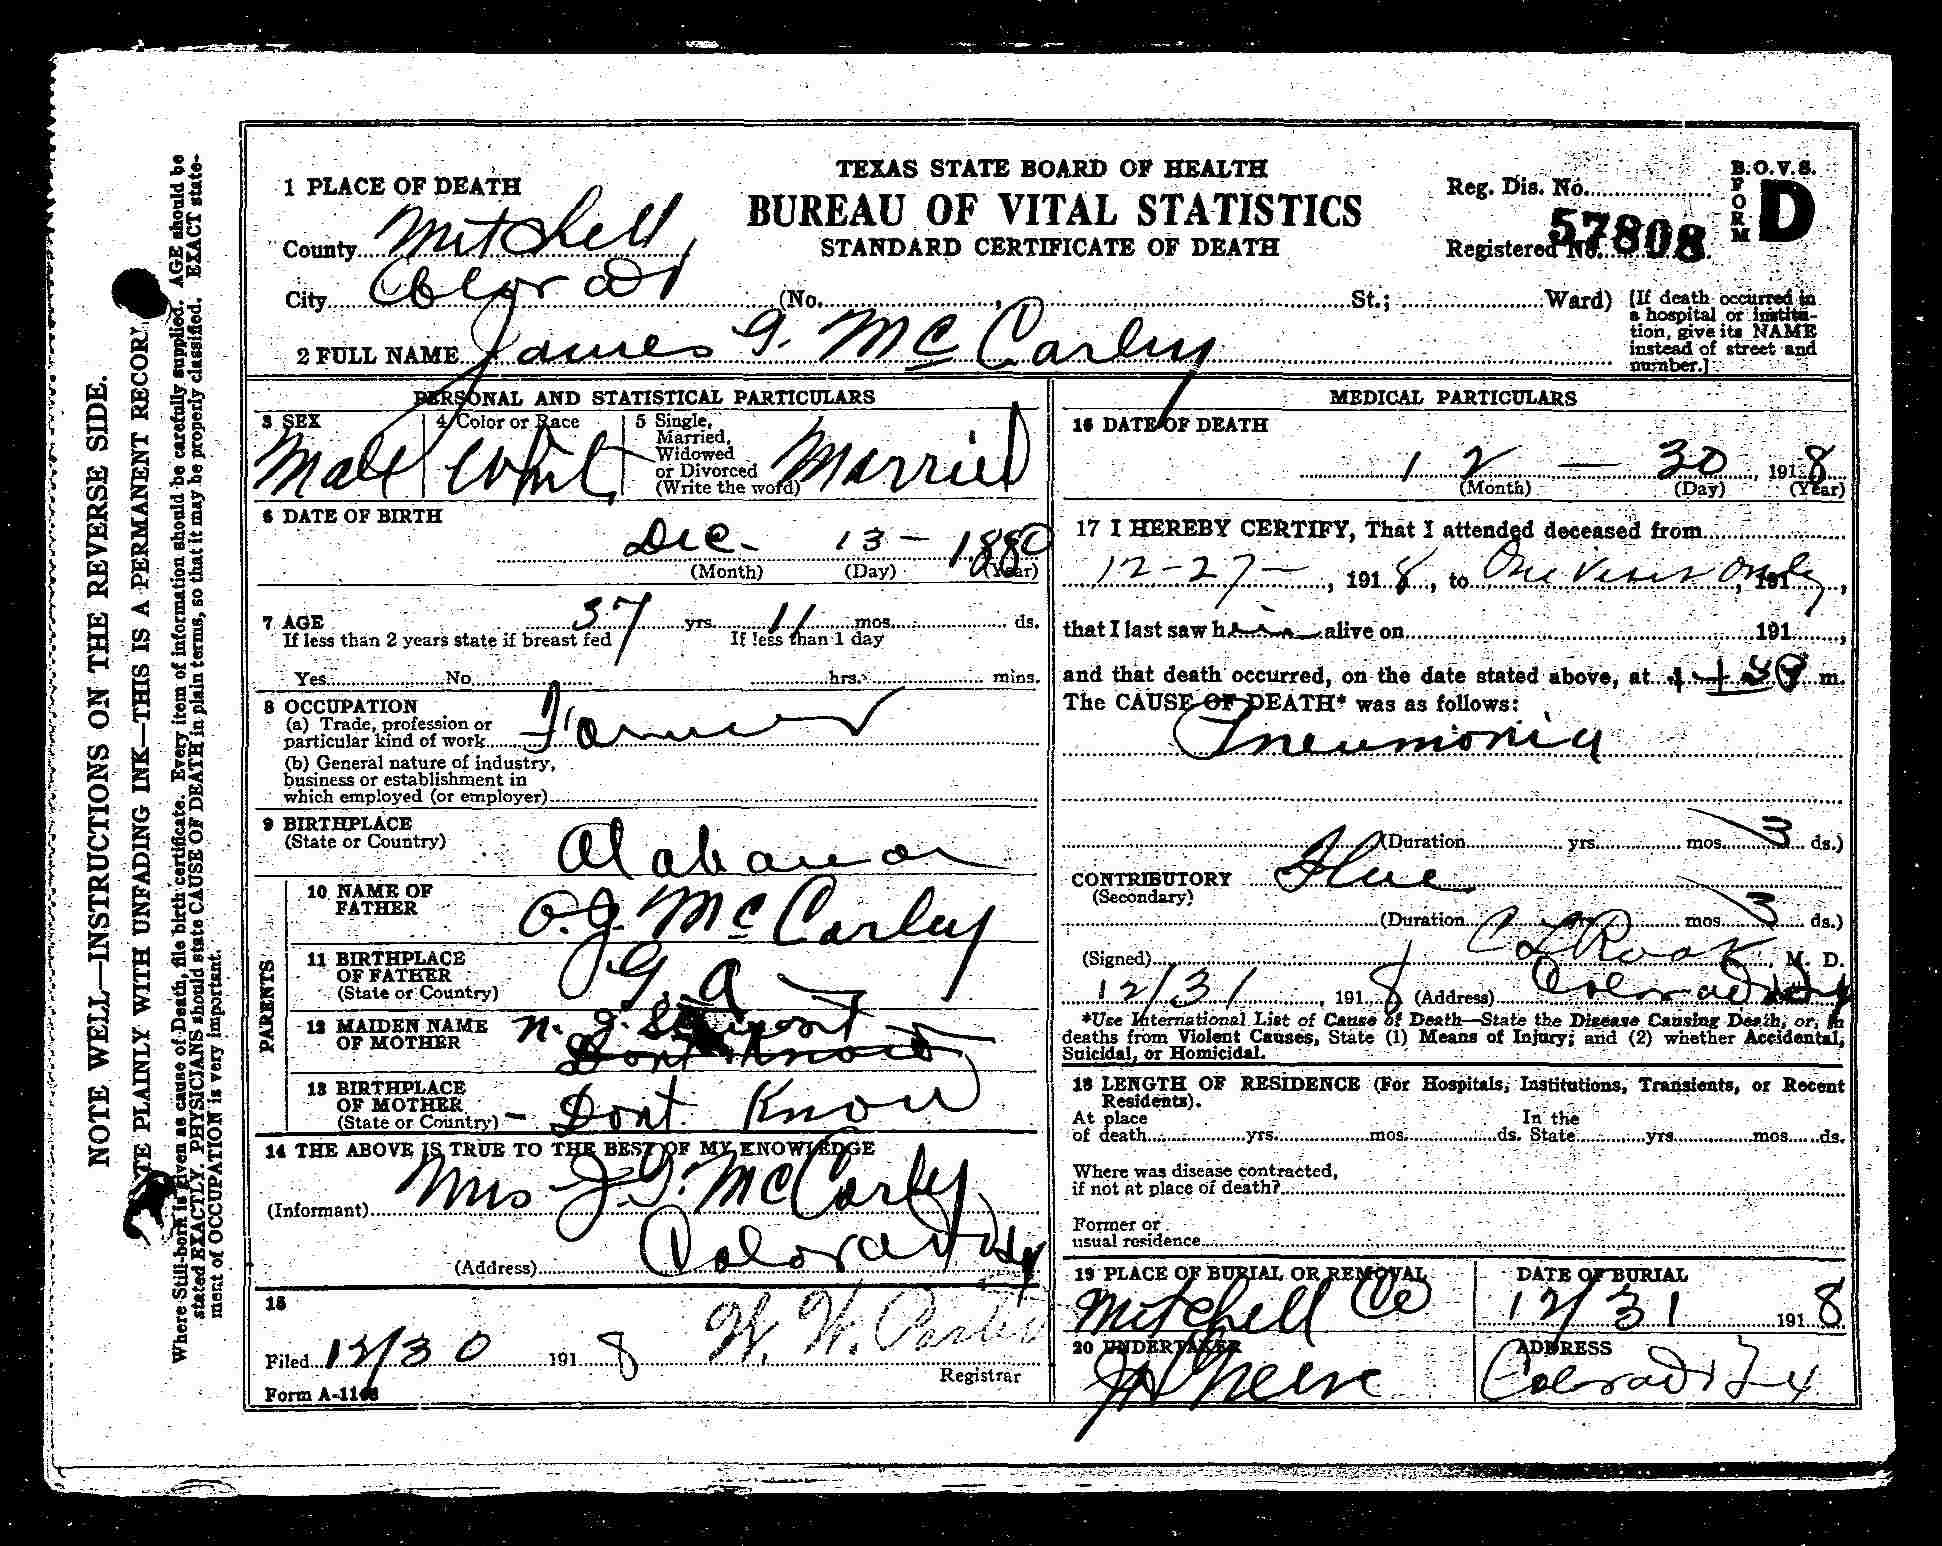 TEXAS STATE BOARD OF HEALTH
BUREAU OF VITAL STATISTICS
STANDARD CERTIFICATE OF DEATH
Reg. Dis. No.
Registered No. 57808
B.O.V.S.
FORM D
1 PLACE OF DEATH
County Mitchell
City Colorado
(No. , St.; Ward)
[If death occurred in
a hospital or institu-
tion, give its NAME
instead of street and
number.]
2 FULL NAME James G. McCarley
PERSONAL AND STATISTICAL PARTICULARS
3 SEX
Male
4 Color or Race
White
5 Single,
Married,
Widowed
or Divorced
(Write the word)
Married
6 DATE OF BIRTH
Dec. 13 - 1880
(Month) (Day) (Year)
7 AGE 37 yrs. 11 mos. ds.
If less than 2 years state if breast fed If less than 1 day
Yes No hrs. mins.
8 OCCUPATION
(a) Trade, profession or
particular kind of work Farmer
(b) General nature of industry,
business or establishment in
which employed (or employer)
9 BIRTHPLACE
(State or Country) Alabama
PARENTS
10 NAME OF
FATHER O. J. McCarley
11 BIRTHPLACE
OF FATHER
(State or Country) Ga
12 MAIDEN NAME
OF MOTHER N. J.
Dont Know
13 BIRTHPLACE
OF MOTHER
(State or Country) - Dont Know
14 THE ABOVE IS TRUE TO THE BEST OF MY KNOWLEDGE
(Informant) Mrs J. G. McCarley
(Address) Colorado Tex
15
Filed 12/30 1918 W. W. Porter
Registrar
Form A-1148
MEDICAL PARTICULARS
16 DATE OF DEATH
12 - 30, 1918
(Month) (Day) (Year)
17 I HEREBY CERTIFY, That I attended deceased from
12-27-, 1918, to One Visit Only, 191 ,
that I last saw him alive on 191 ,
and that death occurred, on the date stated above, at m.
The CAUSE OF DEATH* was as follows:
Pneumonia
(Duration yrs. mos. 3 ds.)
CONTRIBUTORY Flue
(Secondary)
(Duration yrs. mos. 3 ds.)
(Signed) C L Root, M. D.
12/31, 1918 (Address) Colorado Tex
*Use International List of Cause of Death—State the Disease Causing Death, or, in
deaths from Violent Causes, State (1) Means of Injury; and (2) whether Accidental,
Suicidal, or Homicidal.
18 LENGTH OF RESIDENCE (For Hospitals, Institutions, Transients, or Recent
Residents).
At place In the
of death yrs. mos. ds. State yrs. mos. ds.
Where was disease contracted,
if not at place of death?
Former or
usual residence
19 PLACE OF BURIAL OR REMOVAL
Mitchell Co
DATE OF BURIAL
12/31 1918
20 UNDERTAKER
J H Greene
ADDRESS
Colorado Tex
NOTE WELL—INSTRUCTIONS ON THE REVERSE SIDE.
WRITE PLAINLY WITH UNFADING INK—THIS IS A PERMANENT RECORD
Where Still-born is given as cause of Death, file birth certificate. Every item of information should be carefully supplied. AGE should be
stated EXACTLY. PHYSICIANS should state CAUSE OF DEATH in plain terms, so that it may be properly classified. EXACT state-
ment of OCCUPATION is very important.